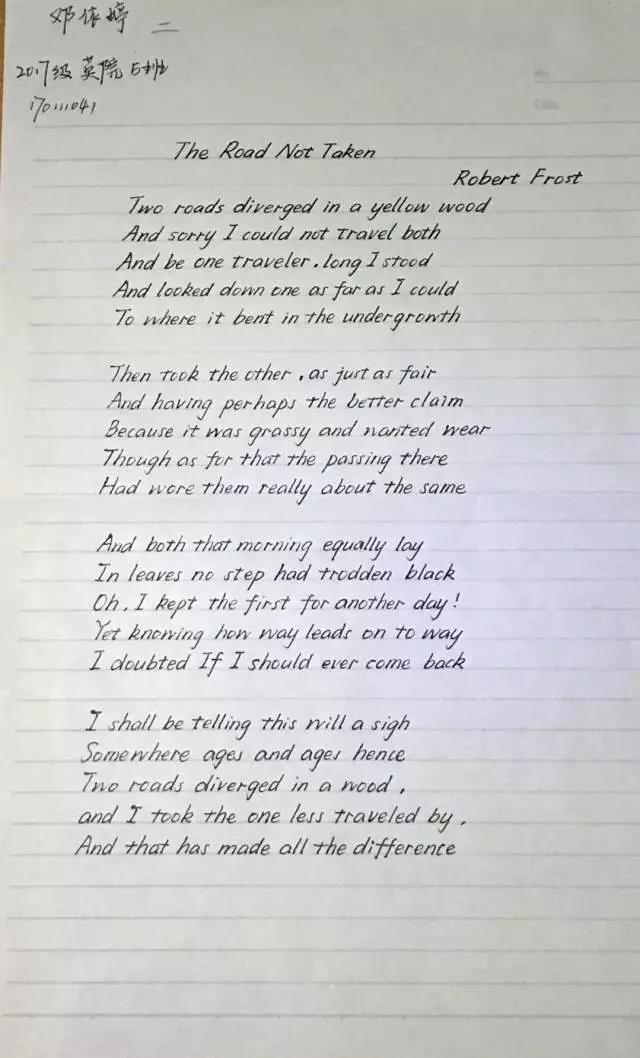 邓依婷 二
2017级 英院 5班
170111041
The Road Not Taken
Robert Frost
Two roads diverged in a yellow wood
And sorry I could not travel both
And be one traveler, long I stood
And looked down one as far as I could
To where it bent in the undergrowth
Then took the other, as just as fair
And having perhaps the better claim
Because it was grassy and wanted wear
Though as for that the passing there
Had wore them really about the same
And both that morning equally lay
In leaves no step had trodden black
Oh, I kept the first for another day!
Yet knowing how way leads on to way
I doubted If I should ever come back
I shall be telling this will a sigh
Somewhere ages and ages hence
Two roads diverged in a wood,
and I took the one less traveled by,
And that has made all the difference